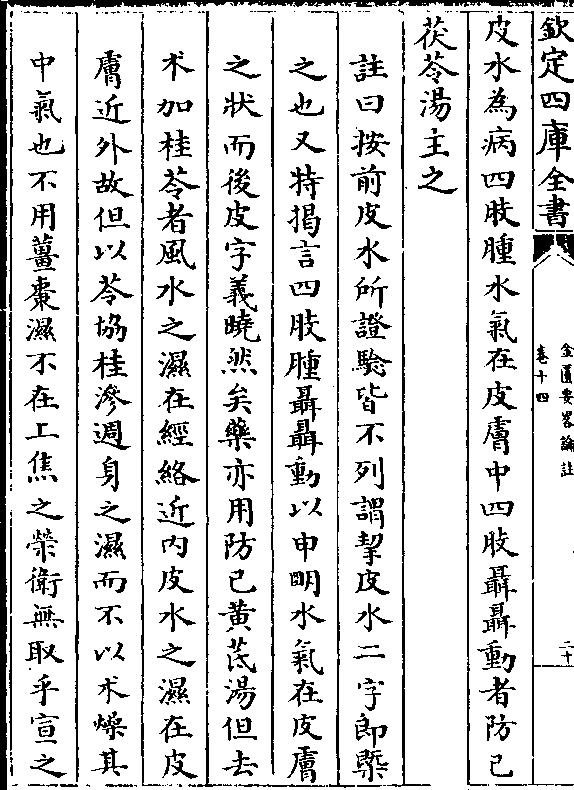 欽定四庫全書
金匱要略論註
卷十四
二十
皮水為病四肢腫水氣在皮膚中四肢聶聶動者防己
茯苓湯主之
註曰按前皮水所證驗皆不列謂挈皮水二字即槩
之也又特揭言四肢腫聶聶動以申明水氣在皮膚
之狀而後皮字義曉然矣藥亦用防己黄茋湯但去
术加桂苓者風水之濕在經絡近内皮水之濕在皮
膚近外故但以苓恊桂滲週身之濕而不以术燥其
中氣也不用薑棗濕不在上焦之榮衛無取乎宣之